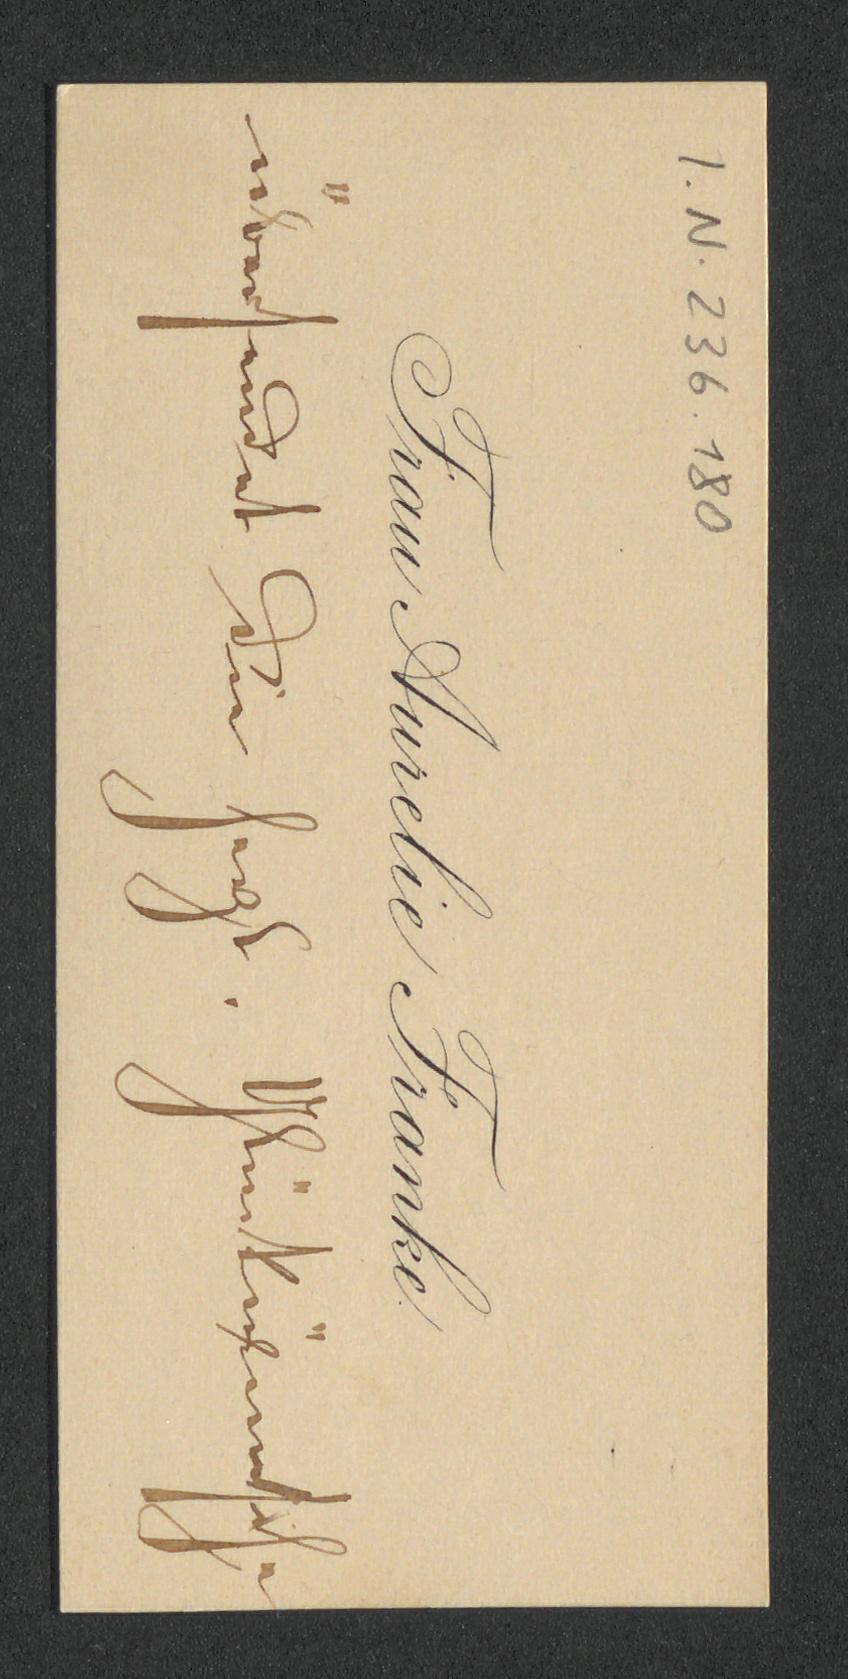 I. N. 236.180
Frau Aurelie Franke
übersendet die herzl. Glückwünsche